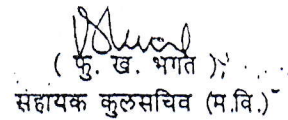 ( फु. ख. भगत )
सहायक कुलसचिव (म.वि.)